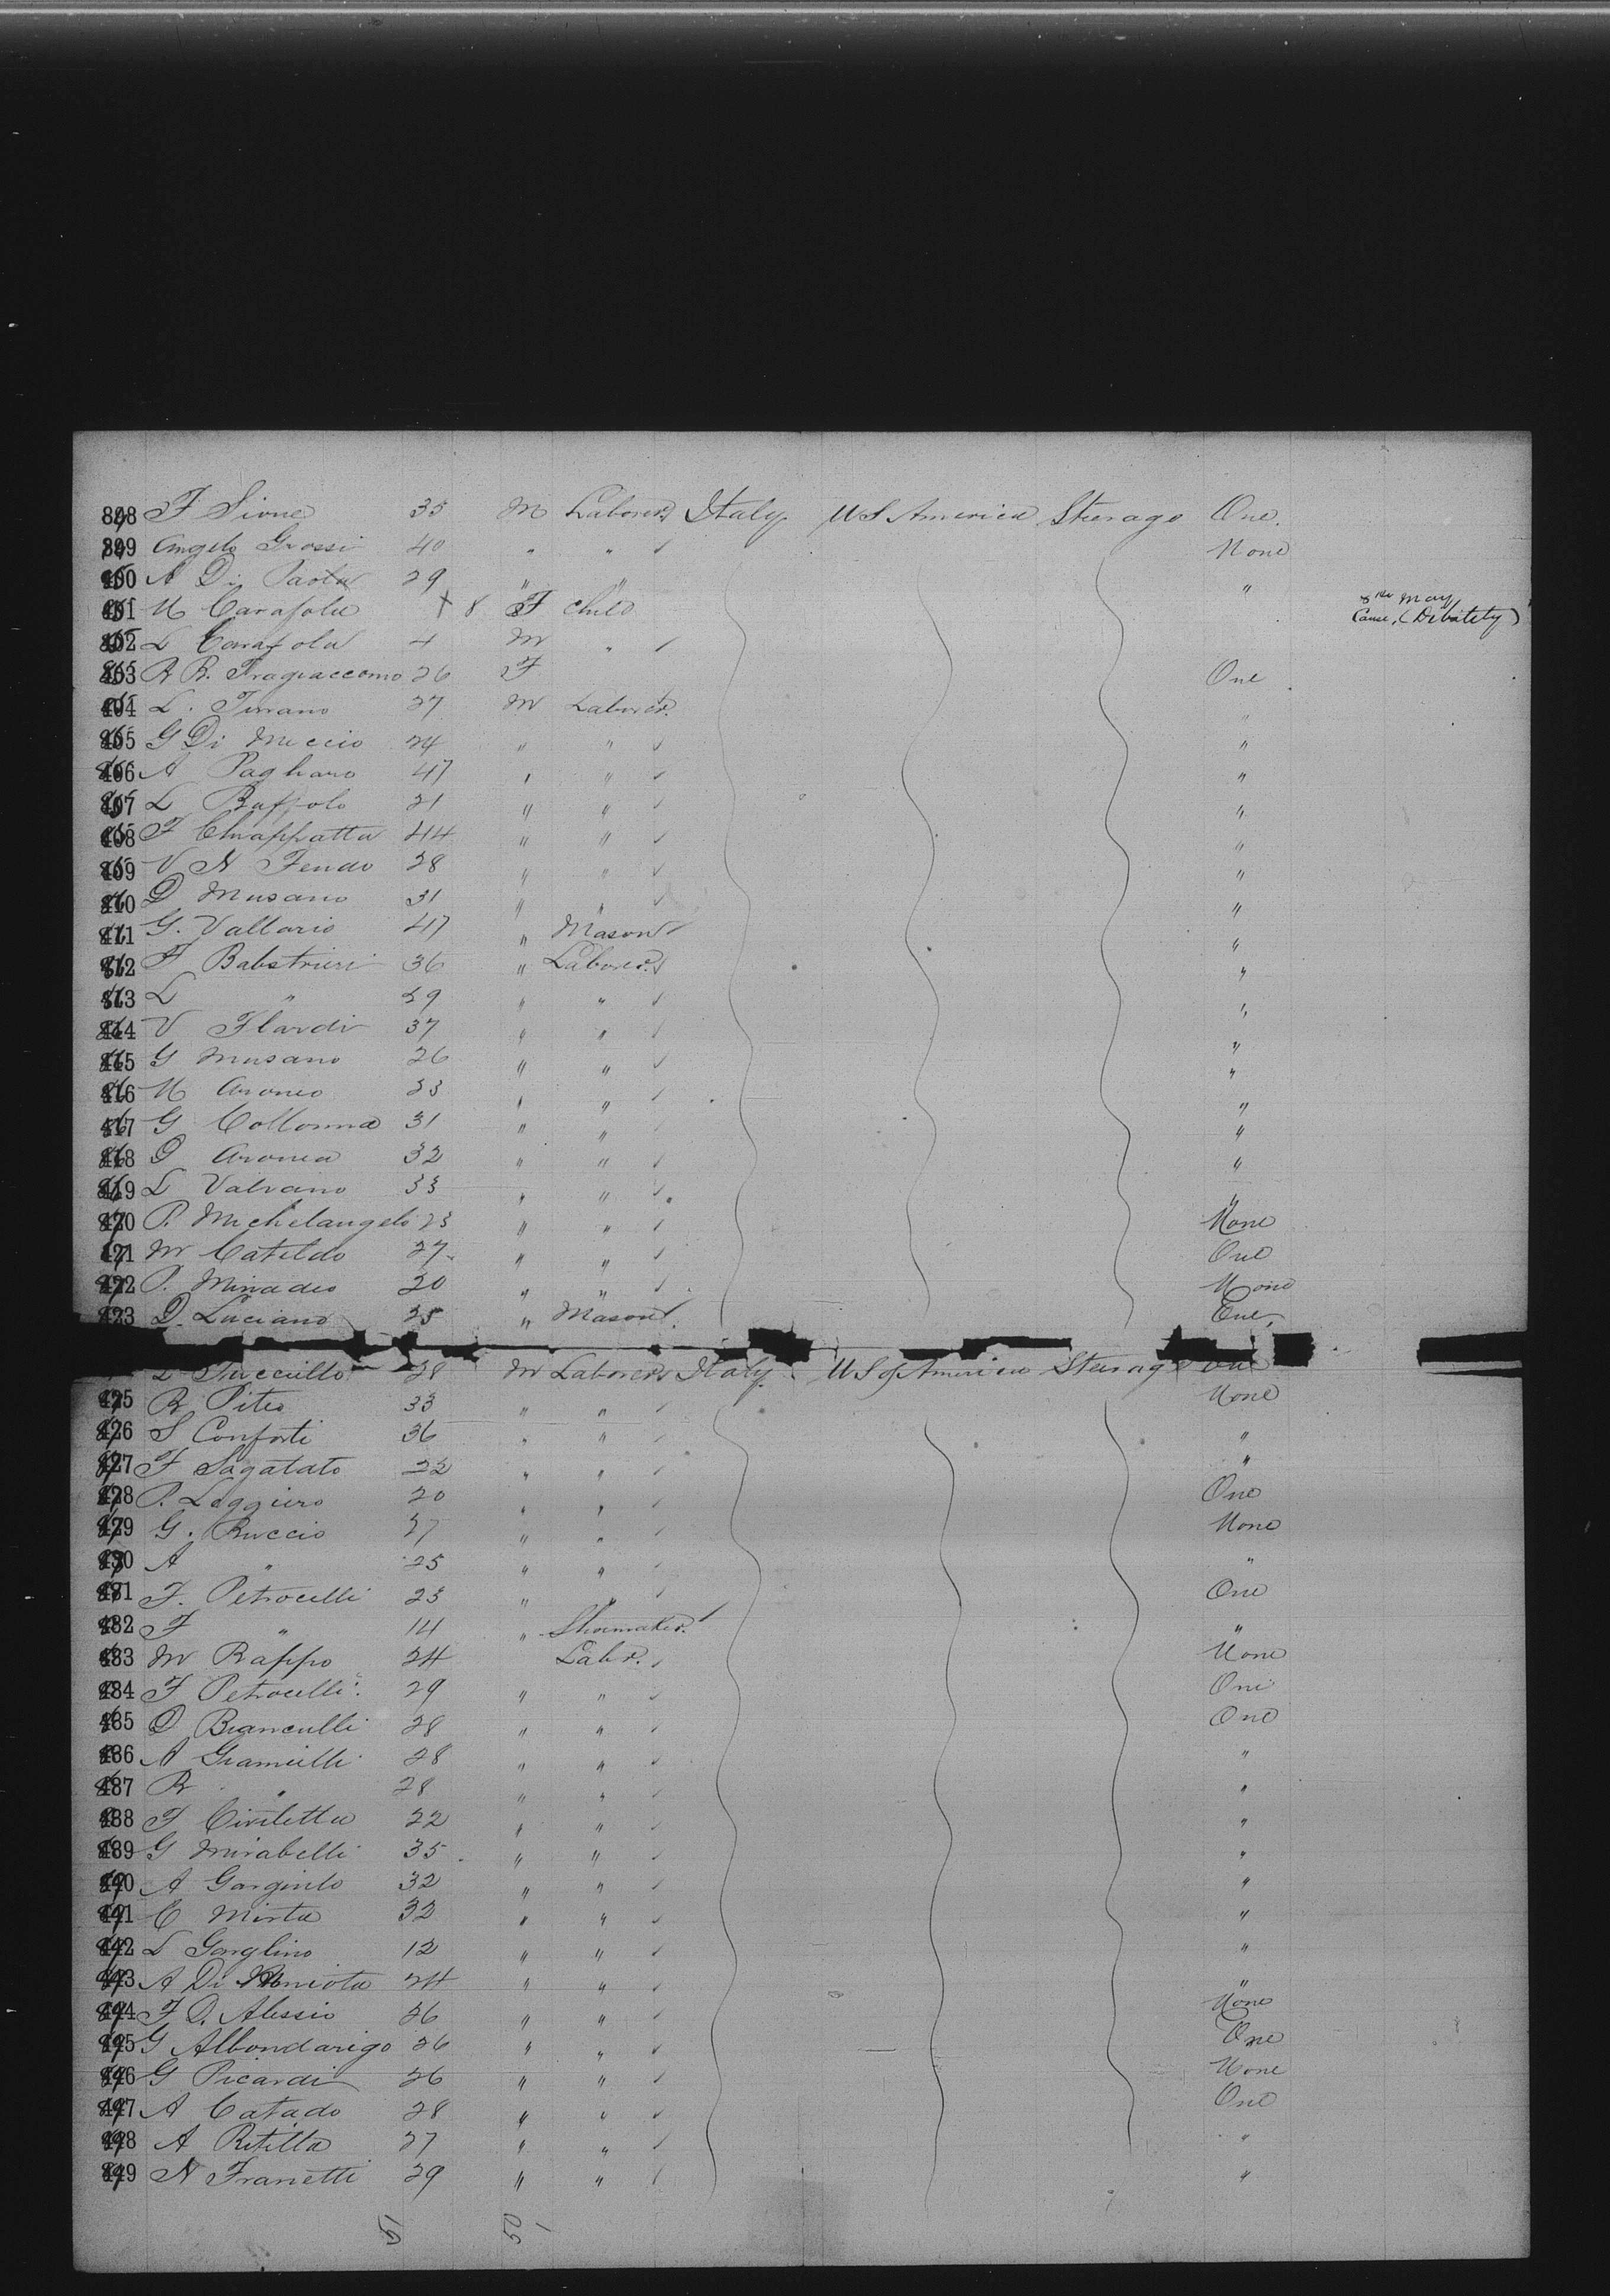 F Sione 35 M Laborer Italy U S America Steerage One.
Angelo Grossi 40 " " ✓ None
A Di Paola 29 " " "
M Carafola + 8 F Child 8th May Cause, (Debility)
L Carafola 4 M " ✓
R R. Fragiaccomo 26 F One
L. Turano 27 M Laborer. "
G Di Meccio 24 " " ✓ "
406 A Pagliaro 47 " " ✓ "
407 L Buffolo 21 " " ✓ "
408 F Chiappatta 44 " " ✓ "
409 V N Fendo 28 " " ✓ "
410 D Musano 31 " " ✓ "
411 G. Vallario 47 " Mason ✓ "
412 F Babstrieri 36 " Laborer. ✓ "
413 L " 29 " " ✓ "
414 V Ilardi 37 " " ✓ "
415 G Musano 26 " " ✓ "
416 M Aroneo 33 " " ✓ "
417 G Collonna 31 " " ✓ "
418 D Aronea 32 " " ✓ "
419 L Valvano 33 " " ✓ "
420 P. Michelangelo 23 " " ✓ None
421 M Catildo 27 " " ✓ One
422 P. Minadeo 20 " " ✓ None
423 D. Luciano 25 " Mason ✓. One,
L Tuccillo 28 M Laborer Italy. U S of America Steerage One
425 R Piteo 33 " " ✓ None
426 S Conforti 36 " " ✓ "
427 F Sagatato 22 " " ✓ "
428 P. Leggiero 20 " " ✓ One
429 G. Ruccio 27 " " ✓ None
430 A " 25 " " ✓ "
431 F. Petrocelli 23 " " ✓ One
432 F " 14 " Shoemaker. ✓ "
433 M Rappo 24 Labr. ✓ None
434 F Petrocelli 29 " " ✓ One
435 D Bianculli 28 " " ✓ One
436 A Gramielli 28 " " ✓ "
437 R " 28 " " ✓ "
438 F Civiletta 22 " " ✓ "
439 G Mirabelli 35 " " ✓ "
440 A Gargiulo 32 " " ✓ "
441 C Mirta 32 " " ✓ "
442 L Garglino 12 " " ✓ "
443 A Di 24 " " ✓ "
444 F D. Alessio 26 " " ✓ None
445 G Albondarigo 26 " " ✓ One
446 G Picardi 26 " " ✓ None
447 A Catado 28 " " ✓ One
448 A Ritilla 27 " " ✓ "
449 N Franetti 29 " " ✓ "